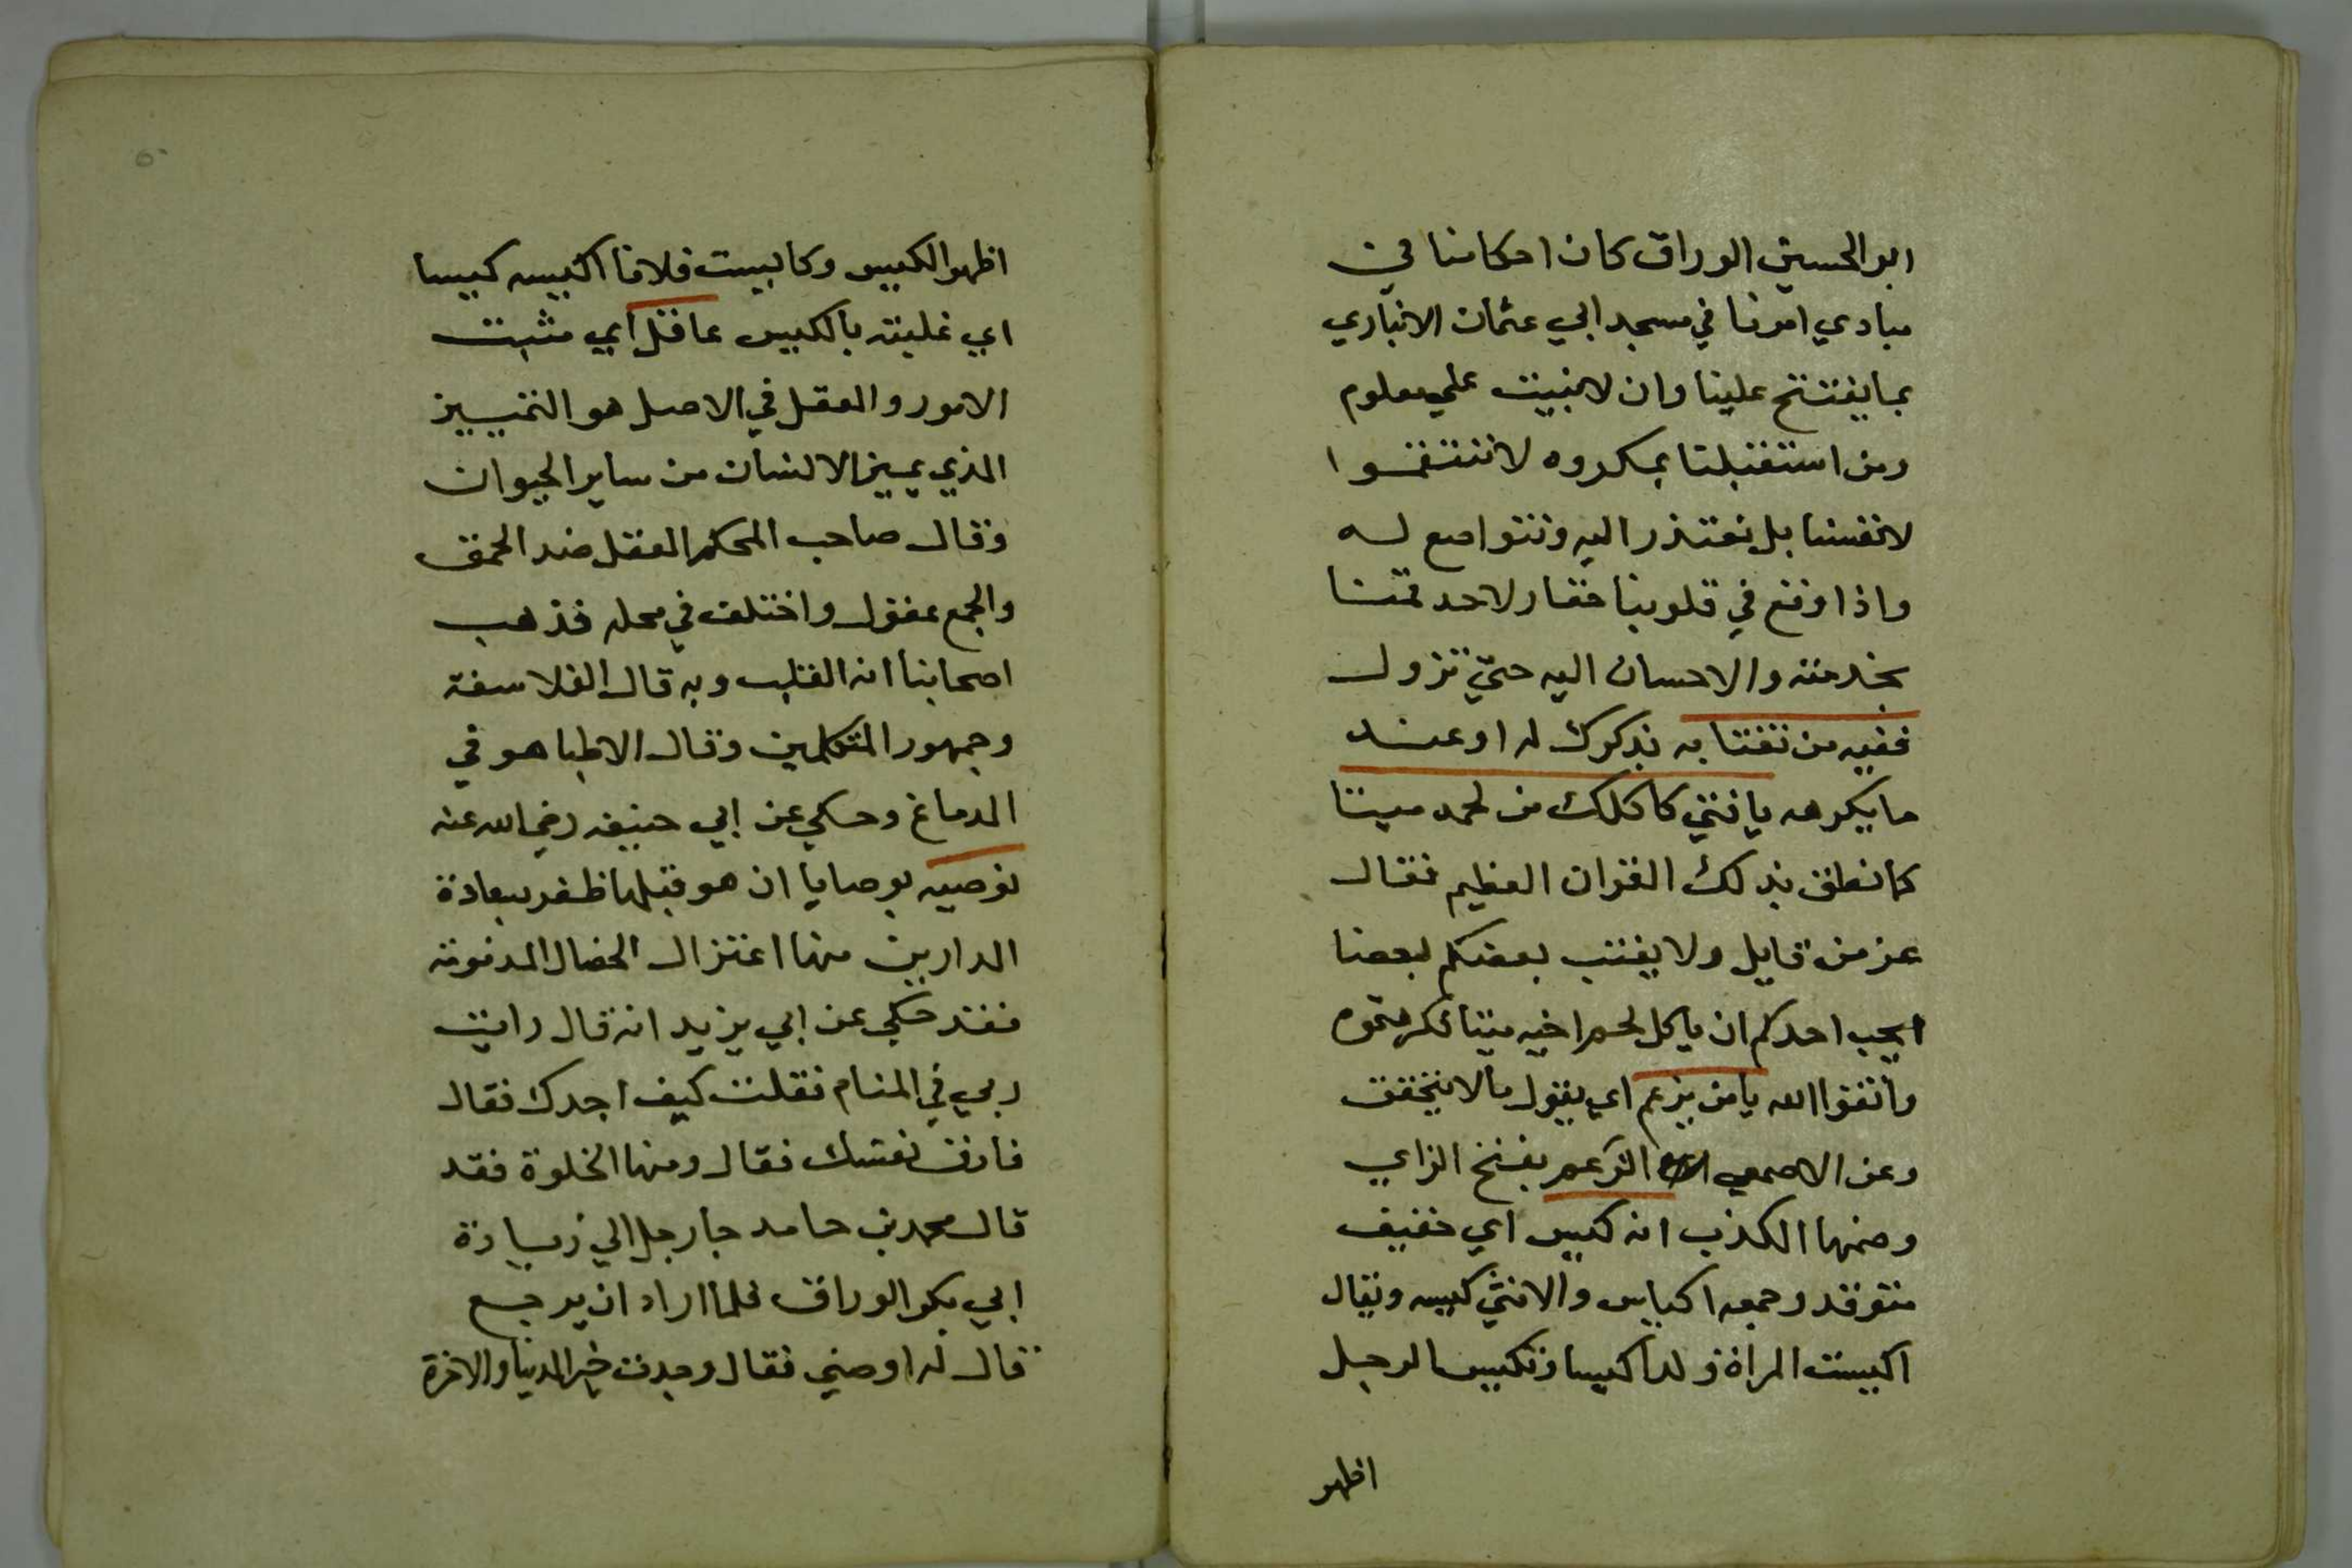 ابو الحسين الوراق كان احكامنا في
مبادي امرنا في مسجد ابي عثمان الانباري
بما يفتتح علينا وان لا نبيت علي معلوم
ومن استقبلنا بمكروه لا ننتقموا
لانفسنا بل نعتذر اليه ونتواضع له
واذا وقع في قلوبنا حقار لاحد قمنا
بخدمته والاحسان اليه حتي تزول
ففيه من تغتابه بذكرك له او عند
ما يكرهه يا فتي كاكلك من لحمه ميتا
كما نطق بذلك القران العظيم فقال
عز من قايل ولا يغتب بعضكم بعضا
ايحب احدكم ان ياكل لحم اخيه ميتا فكرهتموه
واتقوا الله يا من يزعم اي يقول ما لا يتحقق
وعن الاصمعي الزعم بفتح الزاي
وضمها الكذب انه كيس اي خفيف
متوقد وجمعه اكياس والانثي كيسه ويقال
اكيست المراة ولدا كيسا وتكيس الرجل
اظهر
اظهر الكيس وكايست فلانا اكيسه كيسا
اي غلبته بالكيس عاقل اي مثبت
الامور والعقل في الاصل هو التمييز
الذي يميز الانسان من ساير الحيوان
وقال صاحب المحكم العقل ضد الحمق
والجمع عقول واختلف في محله فذهب
اصحابنا انه القلب وبه قال الفلاسفة
وجمهور المتكلمين وقال الاطبا هو في
الدماغ وحكي عن ابي حنيفه رضي الله عنه
توصيه بوصايا ان هو قبلها ظفر بسعادة
الدارين منها اعتزال الخصال المذمومة
فقد حكي عن ابي يزيد انه قال رايت
ربي في المنام فقلت كيف اجدك فقال
فارق نفسك فقال ومنها الخلوة فقد
قال محمد بن حامد جا رجل الي زيارة
ابي بكر الوراق فلما اراد ان يرجع
قال له اوصني فقال وجدت خير الدنيا والاخرة